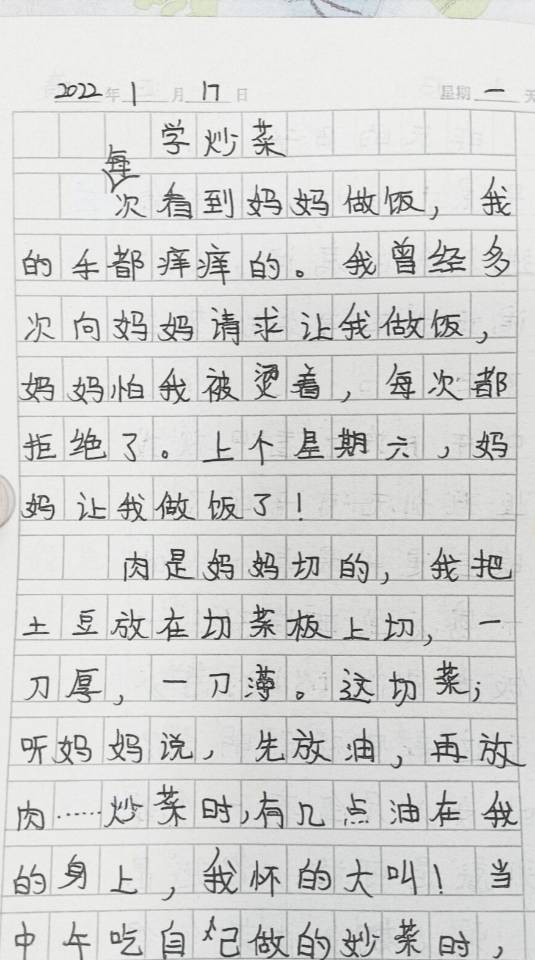 2022年1月17日 星期一 天
学炒菜
每次看到妈妈做饭，我
的手都痒痒的。我曾经多
次向妈妈请求让我做饭，
妈妈怕我被烫着，每次都
拒绝了。上个星期六，妈
妈让我做饭了！
肉是妈妈切的，我把
土豆放在切菜板上切，一
刀厚，一刀薄。这切菜；
听妈妈说，先放油，再放
肉……炒菜时，有几点油在我
的身上，我怀的大叫！当
中午吃自己做的妙菜时，